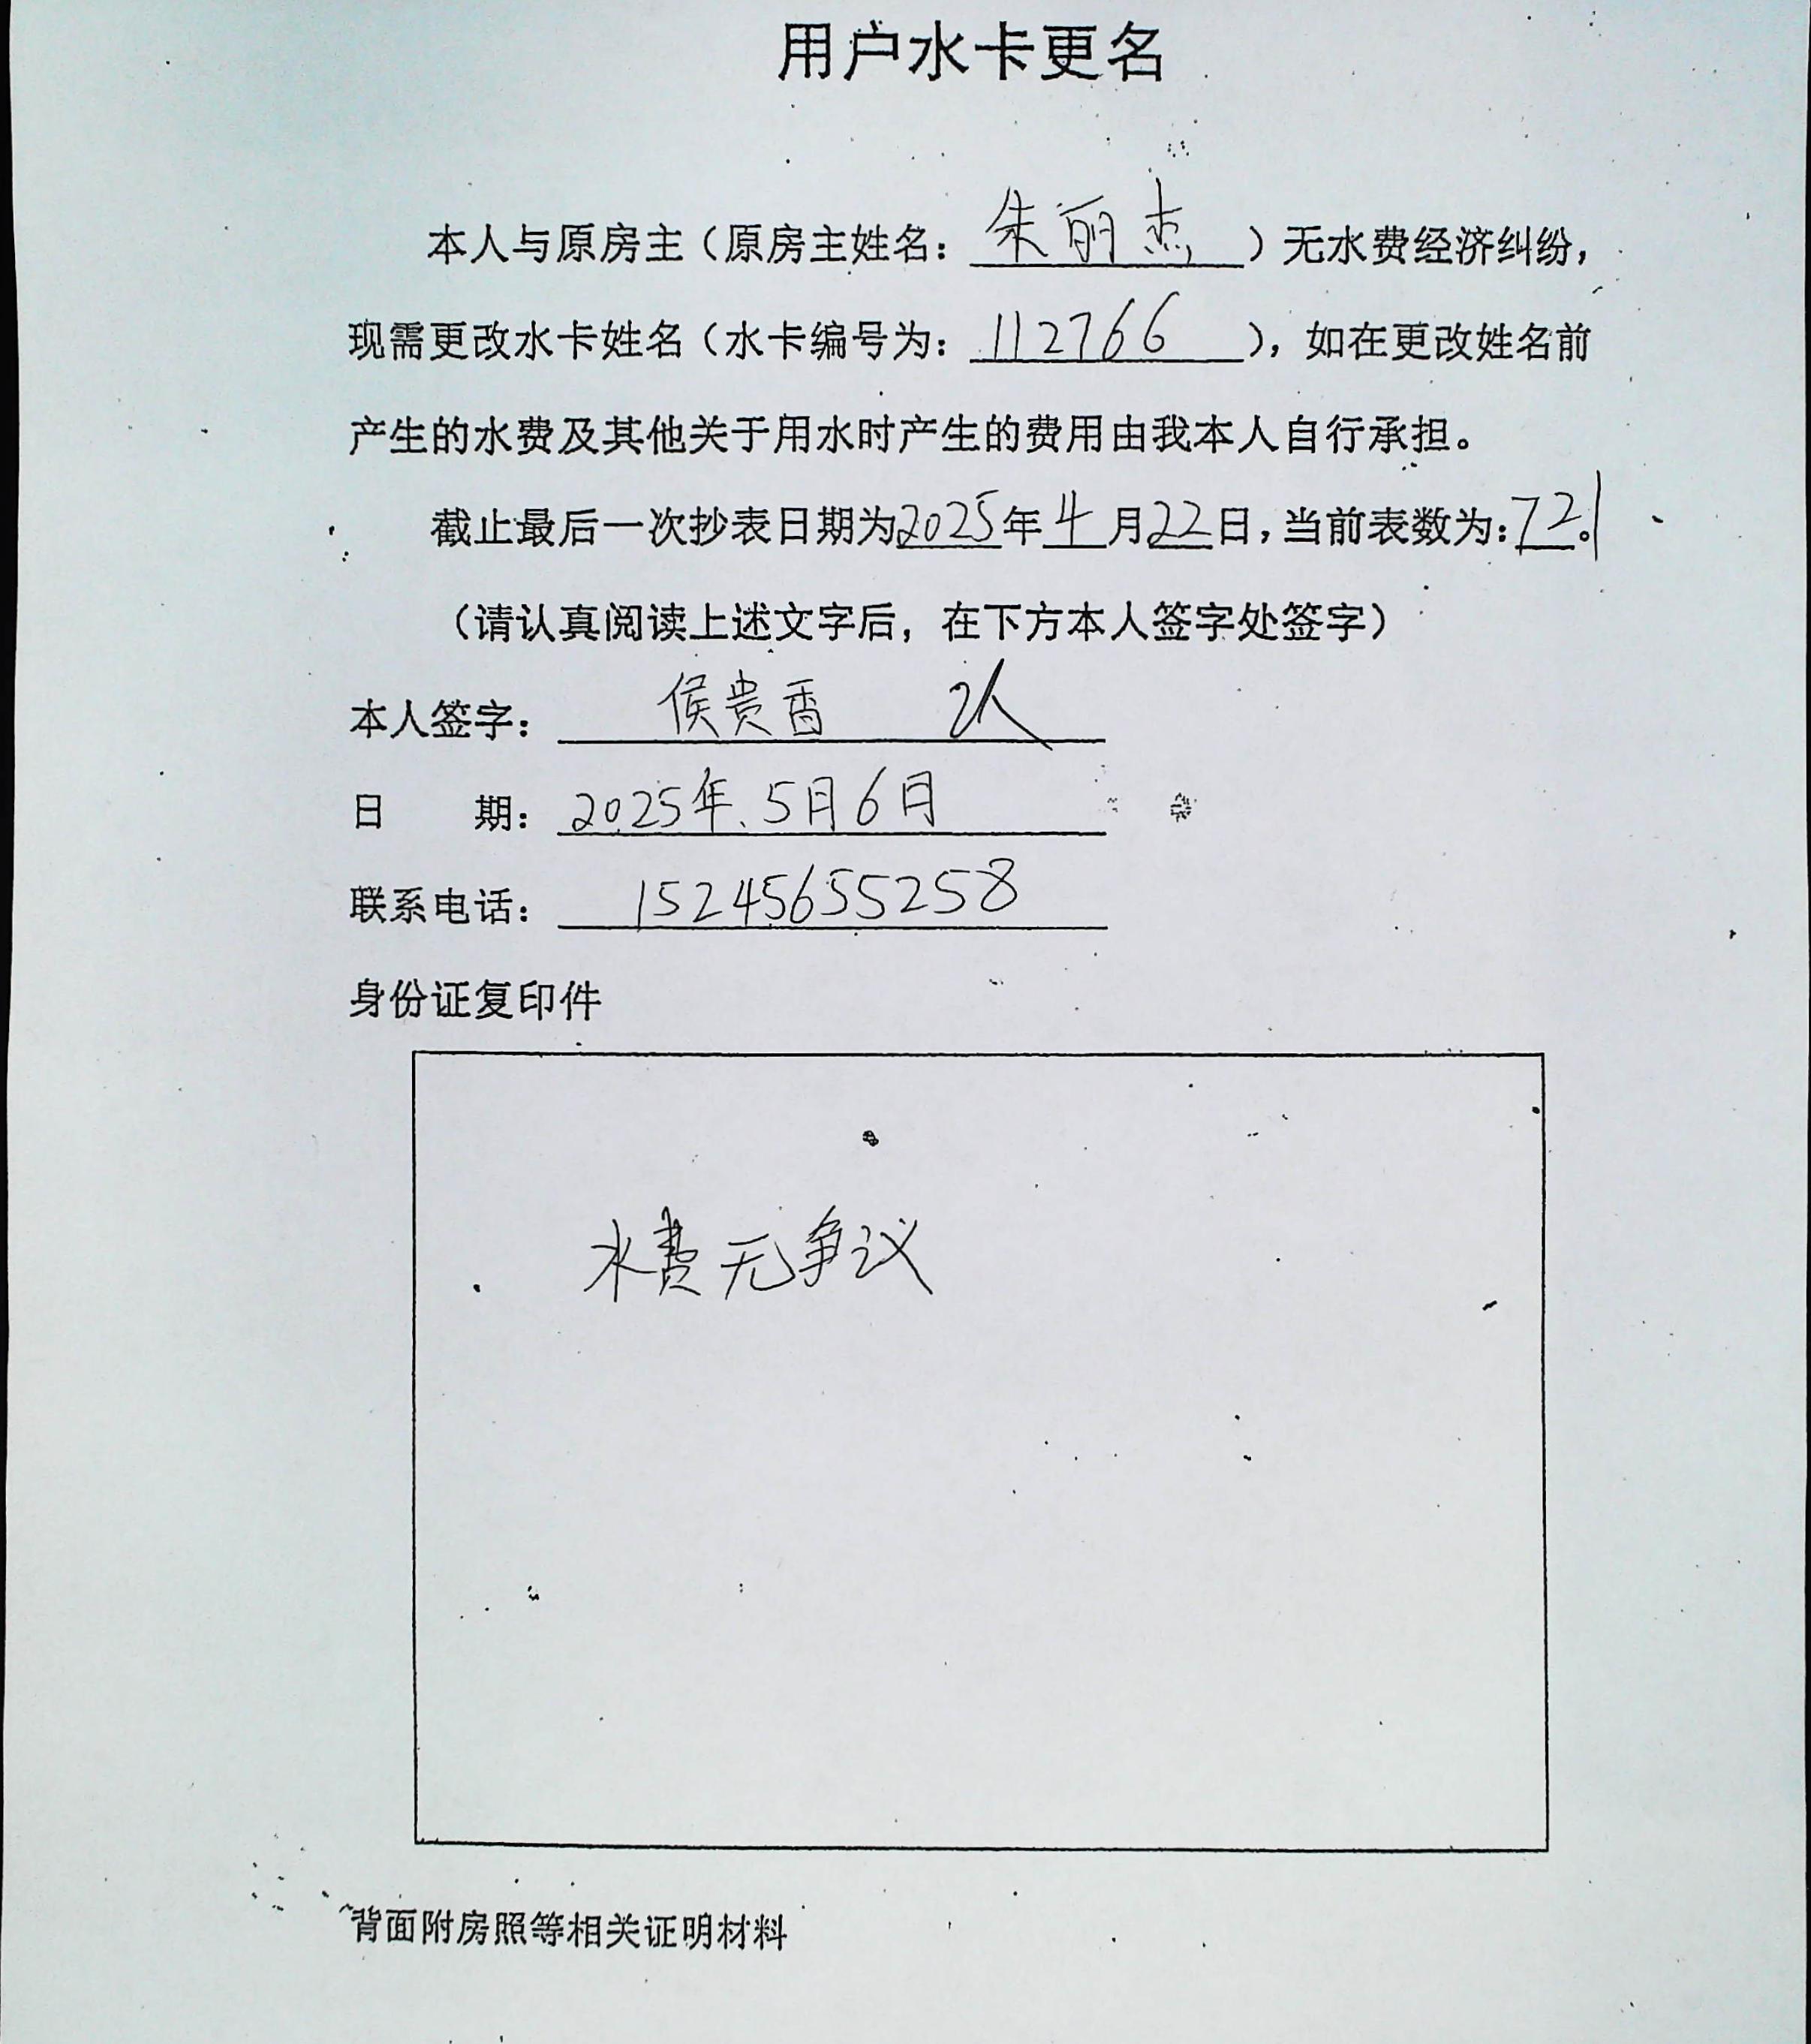 用户水卡更名
本人与原房主（原房主姓名：朱丽杰）无水费经济纠纷，
现需更改水卡姓名（水卡编号为：112766），如在更改姓名前
产生的水费及其他关于用水时产生的费用由我本人自行承担。
截止最后一次抄表日期为2025年4月22日，当前表数为：721。
（请认真阅读上述文字后，在下方本人签字处签字）
本人签字：侯贵香 2人
日 期：2025年.5月6日
联系电话：15245655258
身份证复印件
水费无争议
背面附房照等相关证明材料